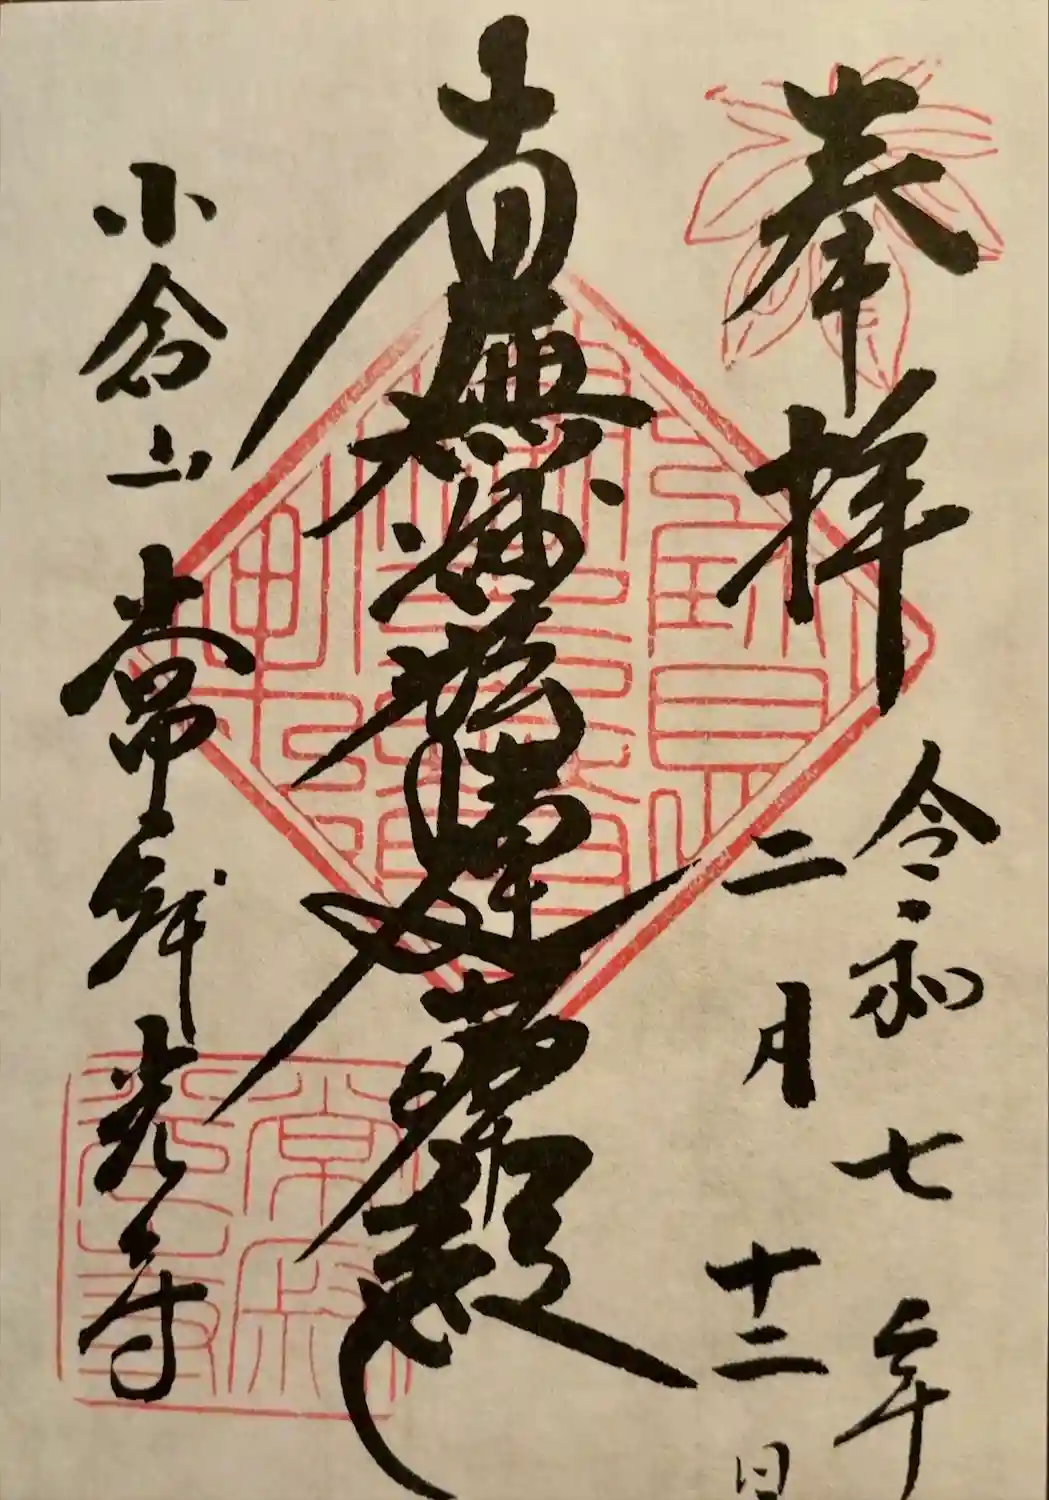 奉拝
令和七年
二月十二日
南無妙法蓮華経
小倉山 常寂光寺
常寂光寺